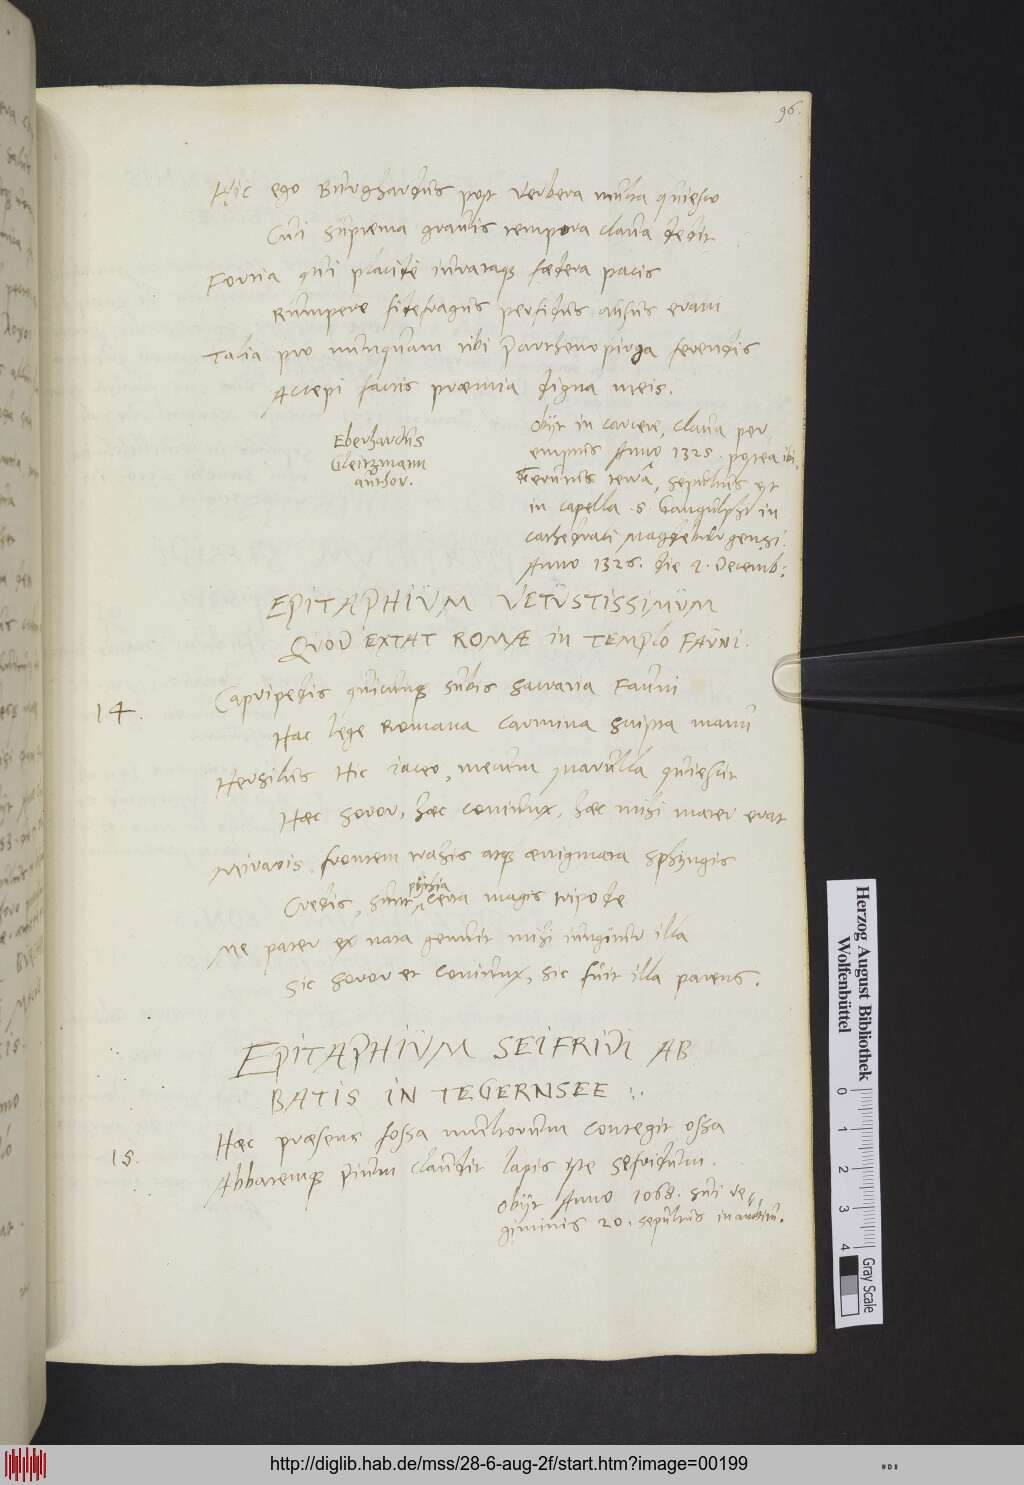 96.
Hic ego Burghardus post verbera multa quiesco
Cui suprema grauis tempora claua dedit
Fortia qui placidę iurataq; fœdera pacis
Rumpere fidefragus perfidus ausus eram
Talia pro nunquam tibi Parthenopirga ferendis
Accepi factis præmia digna meis.
Eberhardus
Gleitzmann
author.
Obijt in carcere, claua per
emptus Anno 1325. postea ibi
erutus terra, sepultus est
in capella .S. Gangulphi in
cathedrali Magdeburgensi.
Anno 1326. die 2. Decemb:
EPITAPHIUM VETUSTISSIMUM
QUOD EXTAT ROMÆ in TEMPLO FAUNI.
14.
Capripedis quicunq; subis sacraria Fauni
Hac lege Romana carmina scripta manu
Hersilus Hic iaceo, mecum Marulla quiescit
Hæc soror, hæc coniunx, hæc mihi mater erat
Miraris, frontem trahis atq; ænigmata Sphyngis
Credis, sunt pythia vera magis tripode
Me pater ex nata genuit mihi iungitur illa
Sic soror et coniunx, sic fuit illa parens.
EPITAPHIUM SEIFRIDI AB
BATIS IN TEGERNSEE :.
15.
Hæc præsens fossa multorum contegit ossa
Abbatemq; Pium claudit lapis iste Sefridum.
Obijt Anno 1068. sui re
giminis 20. sepultus in
Herzog August Bibliothek
Wolfenbüttel
0 1 2 3 4
Gray Scale
http://diglib.hab.de/mss/28-6-aug-2f/start.htm?image=00199